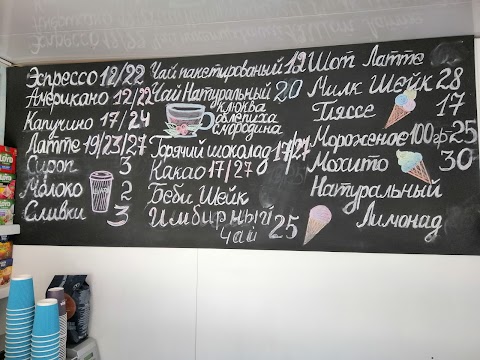 Эспрессо 18/22
Американо 12/22
Капучино 17/24
Латте 19/23/27
Сироп 3
Молоко 2
Сливки 3
Чай пакетированый 12
Чай Натуральный 20
клюква
облепиха
смородина
Горячий шоколад 17/27
Какао 17/27
Беби Шейк
Имбирный
чай 25
Шот Латте
Милк Шейк 28
Глясse 17
Мороженое 100гр 25
Мохито 30
Натуральный
Лимонад